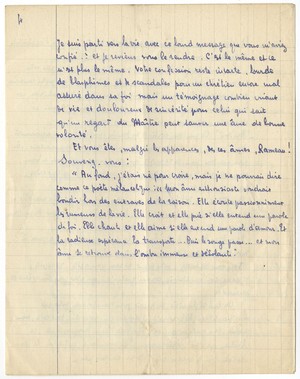 Je suis parti dans la vie avec ce lourd message que vous m'aviez
confié ! et je reviens vous le rendre. C'est le même et ce
n'est plus le même. Votre confession reste intacte, lourde
de blasphèmes et de scandales pour un chrétien encore mal
assuré dans sa foi mais un témoignage combien vivant
de vie et douloureux de sincérité pour celui qui sait
qu'un regard du Maître peut sauver une âme de bonne
volonté.
Et vous êtes, malgré les apparences, de ces âmes, Rameau !
Souvenez-vous :
" Au fond, j'étais né pour croire, mais je ne pourrai dire
comme ce poète mélancolique : mon âme enthousiaste voudrait
bondir hors des entraves de la raison. Elle écoute passionnément
les rumeurs de la vie. Elle croit et elle prie si elle entend une parole
de foi. Elle chante et elle aime si elle entend une parole d'amour. Et
la radieuse espérance la transporte... Puis le songe passe... et mon
âme se retrouve dans l'ombre immense et désolante."